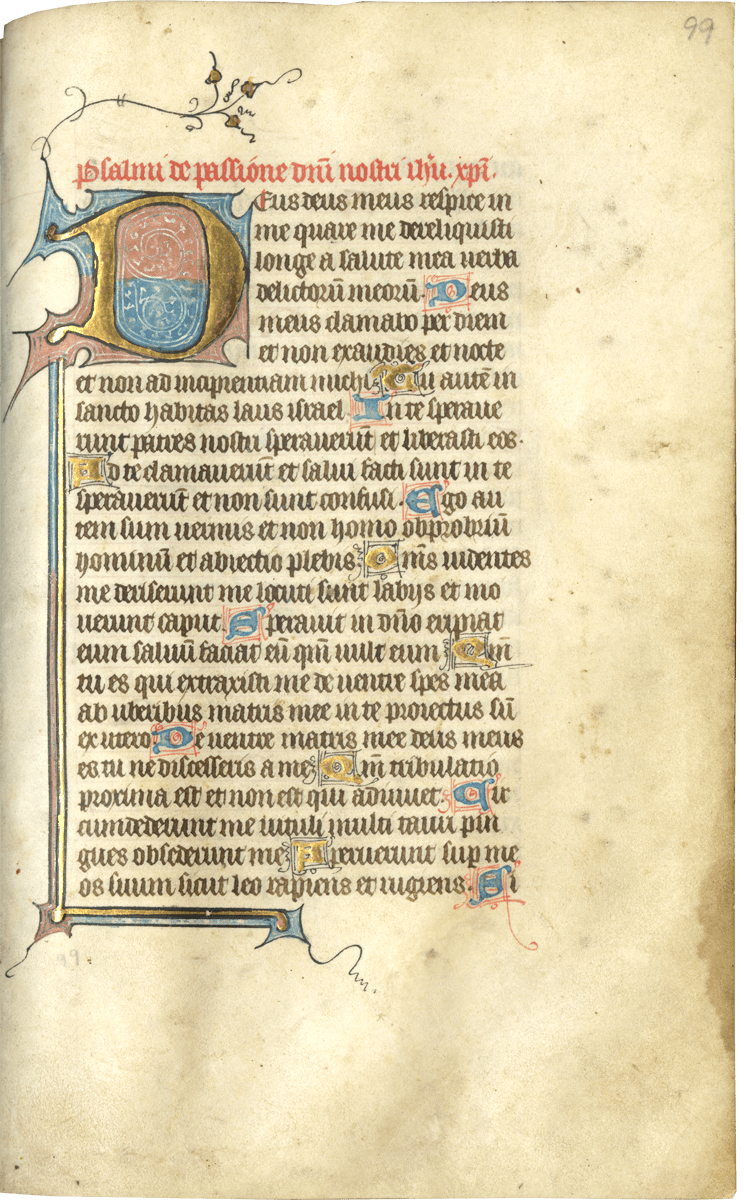 99
Psalmi de passione dnī nostri ihū. xpī.
DEus deus meus respice in
me quare me dereliquisti
longe a salute mea uerba
delictorū meorū. Deus
meus clamabo per diem
et non exaudies et nocte
et non ad incipientiam michi Tu autē in
sancto habitas laus israel. In te speraue
runt patres nostri sperauerūt et liberasti eos.
Ad te clamauerūt et salui facti sunt in te
sperauerūt et non sunt confusi. Ego au
tem sum uermis et non homo obprobriū
hominū et abiectio plebis Om̄s uidentes
me deriserunt me locuti sunt labijs et mo
uerunt caput. Sperauit in dn̄o eripiat
eum saluū faciat eū qm̄ uult eum Qm̄
tu es qui extraxisti me de uentre spes mea
ab uberibus matris mee in te proiectus sū
ex utero De uentre matris mee deus meus
es tu ne discesseris a me Qm̄ tribulatio
proxima est et non est qui adiuuet. Cir
cumdederunt me uituli multi tauri pin
gues obsederunt me Aperuerunt sup me
os suum sicut leo rapiens et rugiens. Si
99